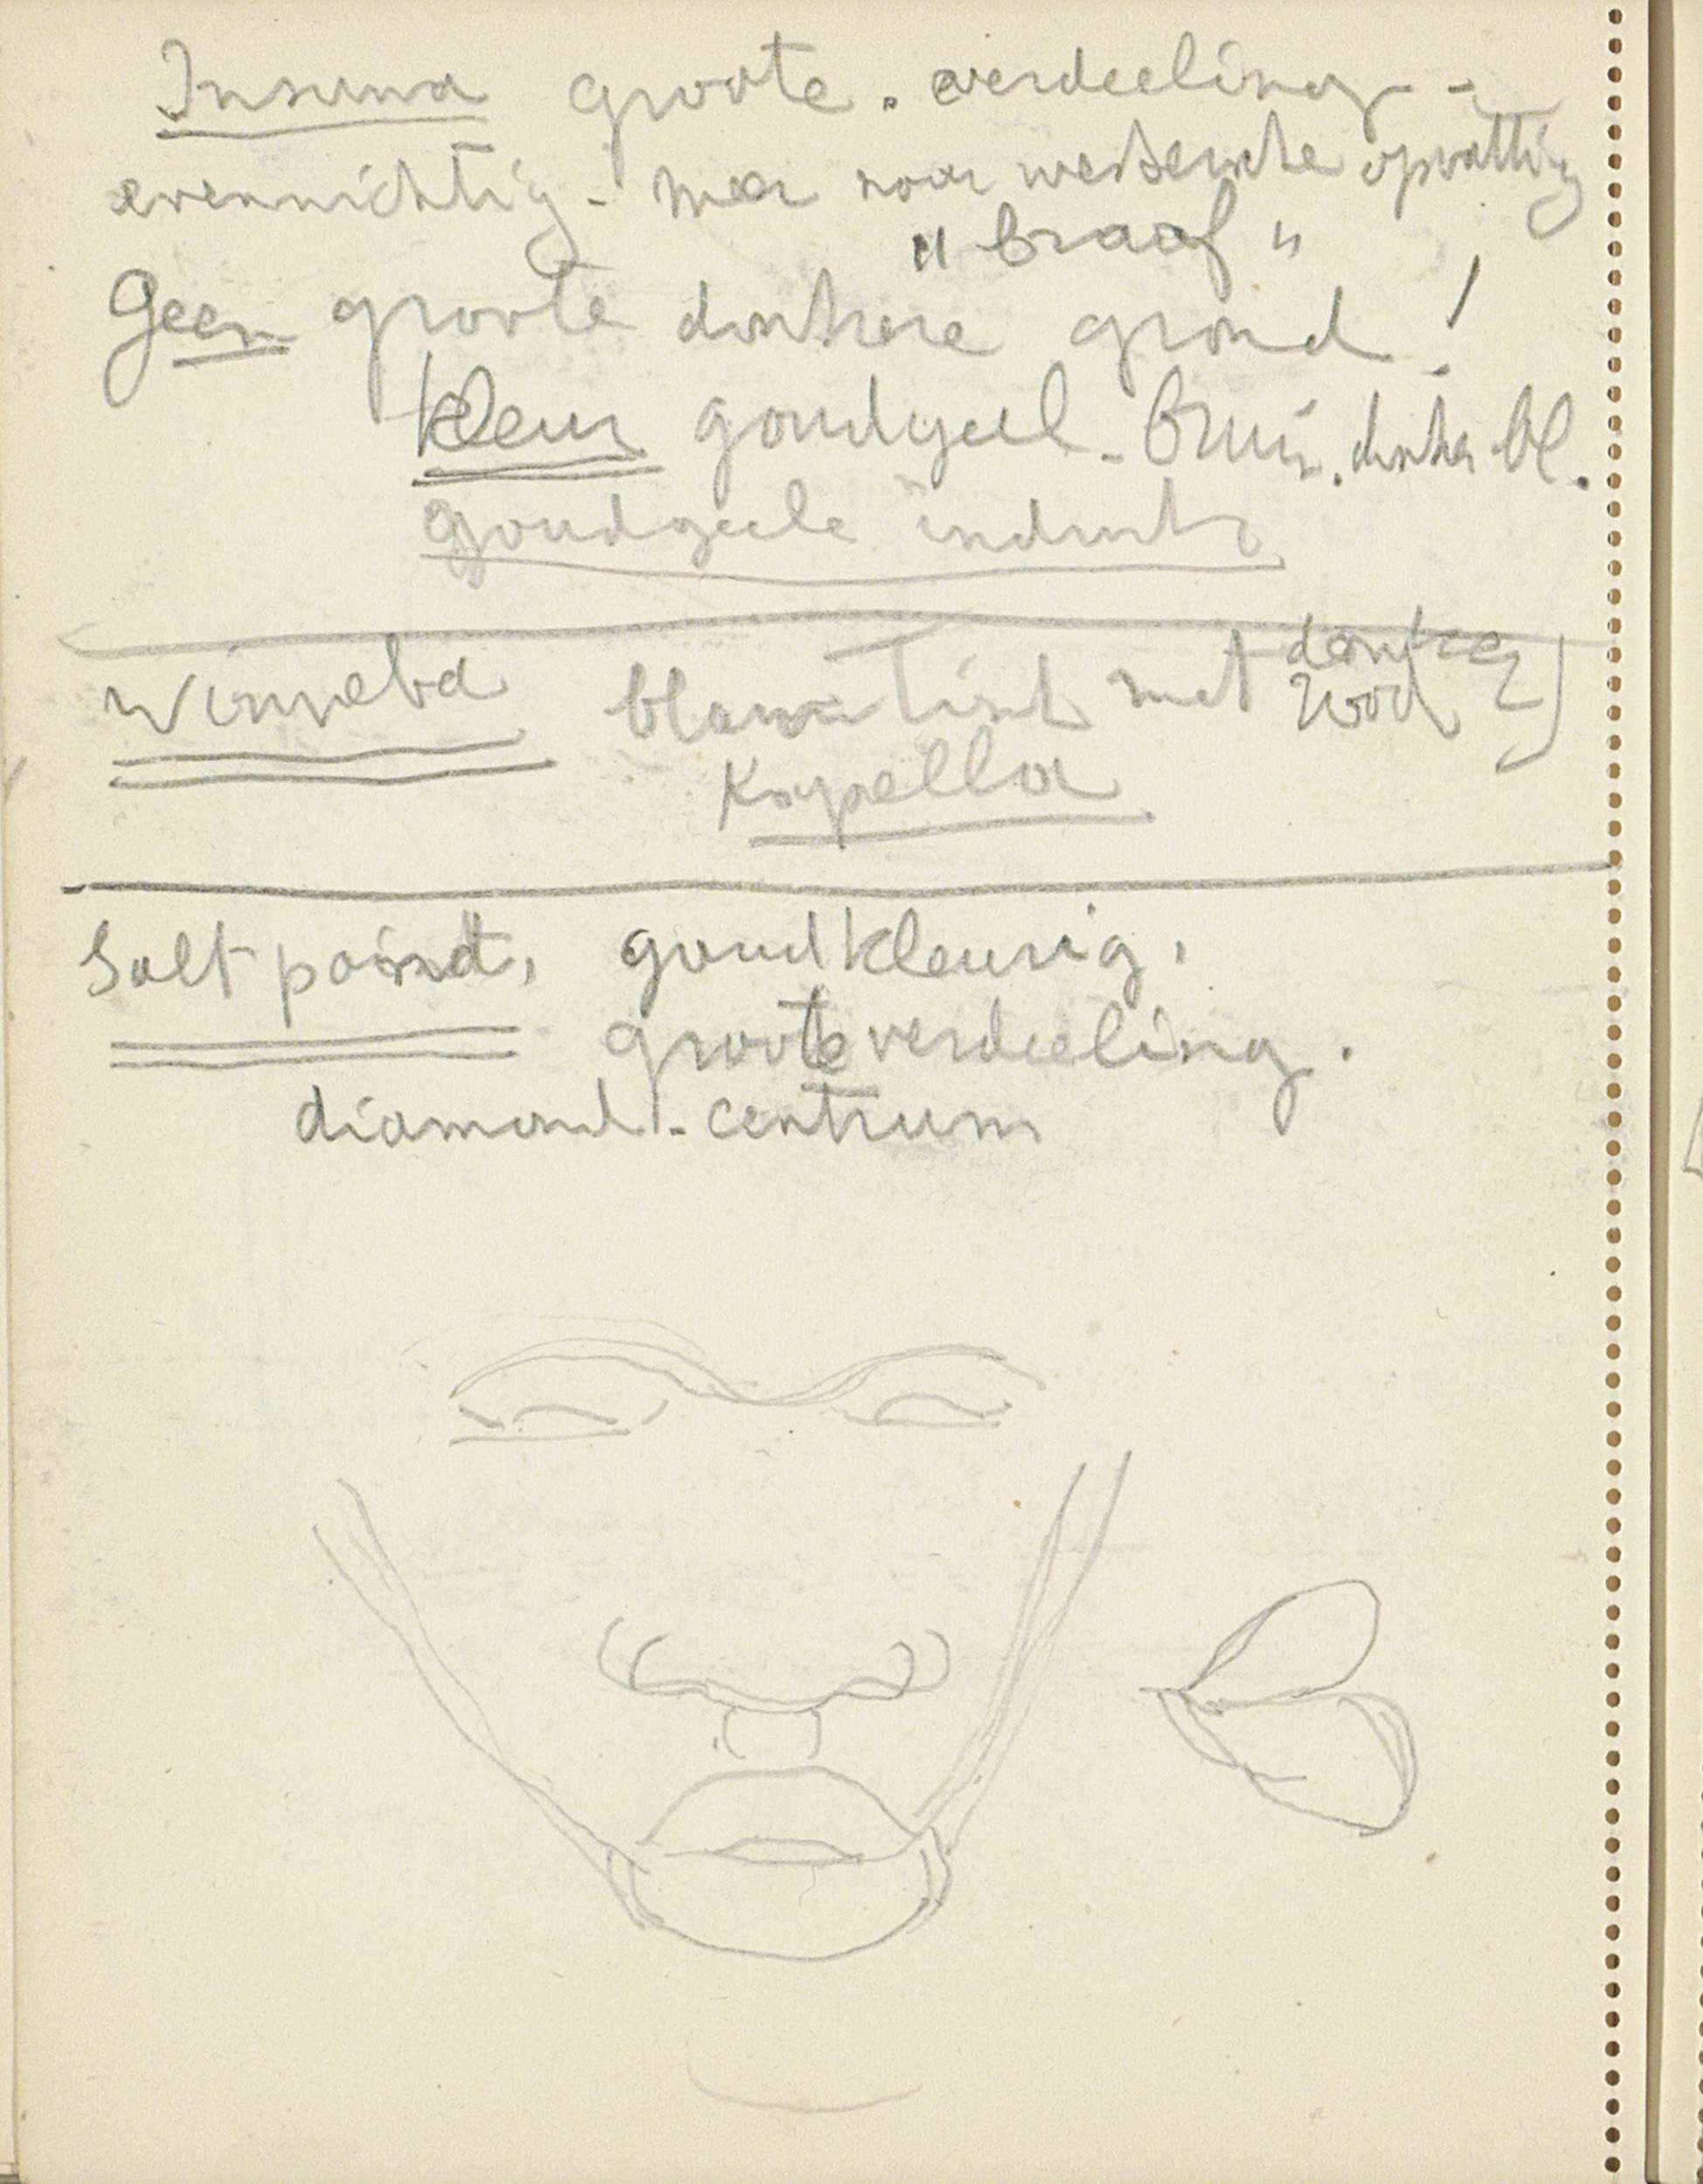 groote verdeeling -
evenwichtig - meer naar westersche opvatting
"braaf"
Geen groote donkere grond !
kleur goudgeel - bruin. donker bl.
goudgeele indruk
Winneba blauwe tint met donker rood
Kapella
Saltpoind, goudkleurig,
groote verdeeling.
diamond - centrum